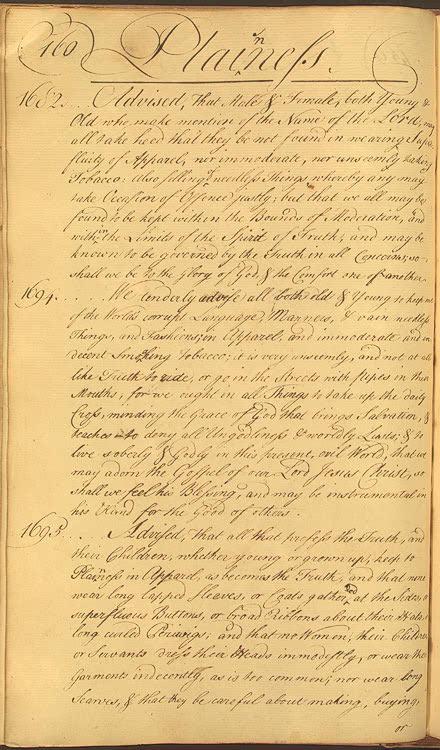 160
Plainness.
1682... Advised, That Male & Female, both Young &
Old who make mention of the Name of the Lord, may
all take heed that they be not found in wearing Super-
fluity of Apparel, nor immoderate, nor unseemly taking
Tobacco: also selling needless Things whereby any may
take Occasion of Offence justly; but that we all may be
found to be kept within the Bounds of Moderation, and
within the Limits of the Spirit of Truth; and may be
known to be governed by the Truth in all Concerns, so
shall we be to the Glory of God, & the Comfort one of another.
1694.... We tenderly advise all both old & Young to keep out
of the World's corrupt Language, Manners, & vain needless
Things, and Fashions, in Apparel, and immoderate and in-
decent Smoking Tobacco; it is very unseemly, and not at all
like Truth to ride, or go in the Streets with pipes in their
Mouths, for we ought in all Things to take up the daily
Cross, minding the Grace of God that brings Salvation, &
teaches to deny all Ungodliness & worldly Lusts, & to
live soberly & Godly in this present, evil World, that we
may adorn the Gospel of our Lord Jesus Christ, so
shall we feel his Blessing, and may be instrumental in
his Hand for the Good of others.
1695... Advised, That all that profess the Truth, and
their Children, whether young or grown up, keep to
Plainness in Apparel, as becomes the Truth, and that none
wear long lapped Sleeves, or Coats gathered at the Sides, or
superfluous Buttons, or broad Ribbons about their Hats, or
long curled Periwigs; and that no Women, their Children,
or Servants dress their Heads immodestly, or wear their
Garments indecently, as is too common; nor wear long
Scarves, & that they be careful about making, buying,
or